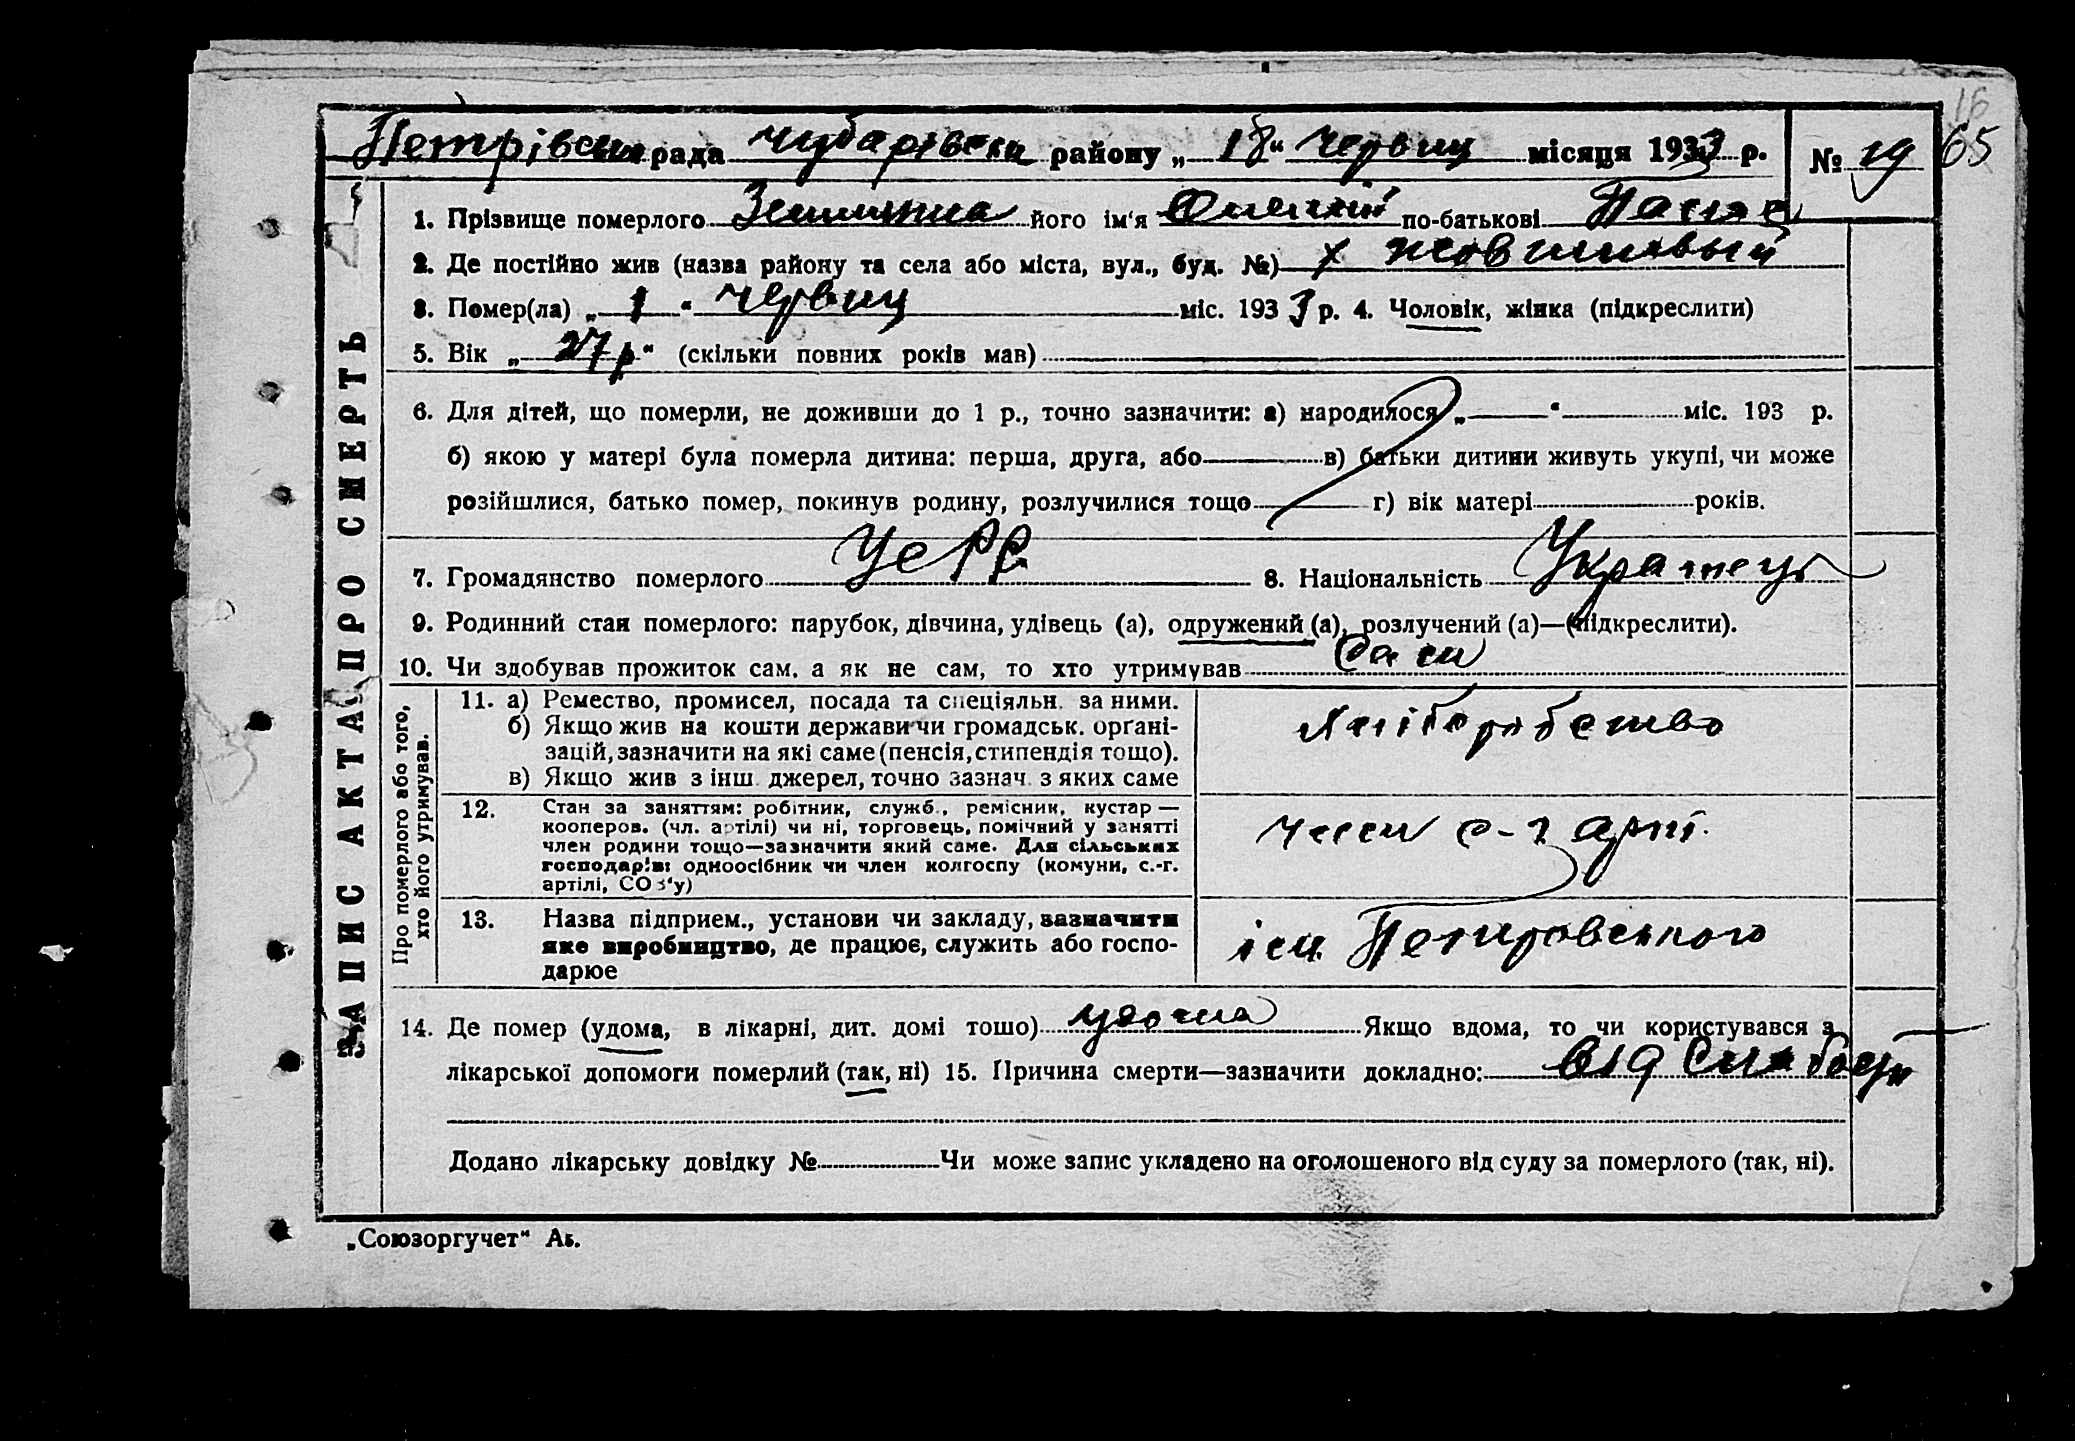 16
Петрівськ рада Чубарівськ району „ 18 “ червня місяця 1933 р. № 19 65
ЗАПИС АКТА ПРО СМЕРТЬ
1. Прізвище померлого його ім‘я по-батькові
2. Де постійно жив (назва району та села або міста, вул., буд. №) х
3. Помер(ла) „ 1 “ червня міс. 193 3 р. 4. Чоловік, жінка (підкреслити)
5. Вік „ 27 р “ (скільки повних років мав)
6. Для дітей, що померли, не доживши до 1 р., точно зазначити: а) народилося „ “ міс. 193 р.
б) якою у матері була померла дитина: перша, друга, або в) батьки дитини живуть укупі, чи може
розійшлися, батько помер, покинув родину, розлучилися тощо г) вік матері років.
7. Громадянство померлого УСРР 8. Національність Українець
9. Родинний стан померлого: парубок, дівчина, удівець (а), одружений (а), розлучений (а)—(підкреслити).
10. Чи здобував прожиток сам, а як не сам, то хто утримував сам
Про померлого або того,
хто його утримував.
11. а) Ремество, промисел, посада та спеціяльн. за ними.
б) Якщо жив на кошти держави чи громадськ. орґані-
зацій, зазначити на які саме (пенсія, стипендія тощо).
в) Якщо жив з інш. джерел, точно зазнач. з яких саме
Хліборобство
12. Стан за заняттям: робітник, служб., ремісник, кустар —
кооперов. (чл. артілі) чи ні, торговець, помічний у занятті
член родини тощо—зазначити який саме. Для сільських
господарів: одноосібник чи член колгоспу (комуни, с.-г.
артілі, СОЗ‘у)
член с-г арт.
13. Назва підприєм., установи чи закладу, зазначити
яке виробництво, де працює, служить або госпо-
дарює
ім. Петровського
14. Де помер (удома, в лікарні, дит. домі тощо) удома Якщо вдома, то чи користувався з
лікарської допомоги померлий (так, ні) 15. Причина смерти—зазначити докладно: від слабости
Додано лікарську довідку № Чи може запис укладено на оголошеного від суду за померлого (так, ні).
„Союзоргучет“ Аз.